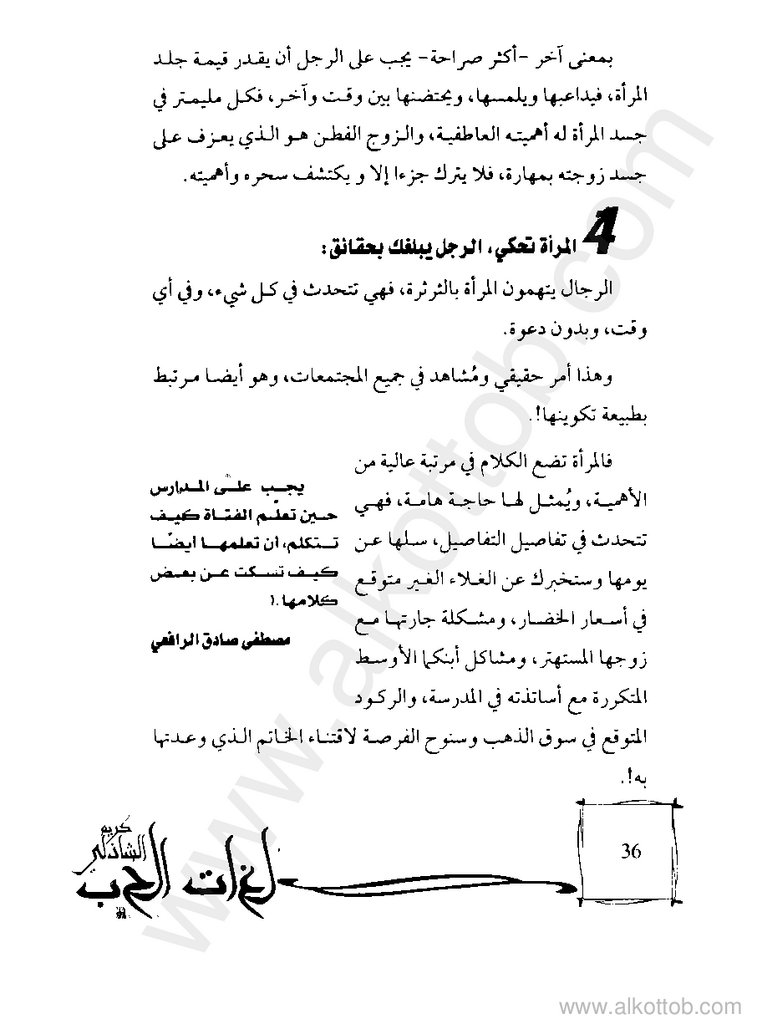 بمعنى آخر -أكثر صراحة- يجب على الرجل أن يقدر قيمة جلد
المرأة، فيداعبها ويلمسها، ويحتضنها بين وقت وآخر، فكل مليمتر في
جسد المرأة له أهميته العاطفية، والزوج الفطن هو الذي يعزف على
جسد زوجته بمهارة، فلا يترك جزءا إلا و يكتشف سحره وأهميته.
4 المرأة تحكي، الرجل يبلغك بحقائق:
الرجال يتهمون المرأة بالثرثرة، فهي تتحدث في كل شيء، وفي أي
وقت، وبدون دعوة.
وهذا أمر حقيقي ومُشاهد في جميع المجتمعات، وهو أيضا مرتبط
بطبيعة تكوينها!.
فالمرأة تضع الكلام في مرتبة عالية من
الأهمية، ويُمثل لها حاجة هامة، فهي
تتحدث في تفاصيل التفاصيل، سلها عن
يومها وستخبرك عن الغلاء الغير متوقع
في أسعار الخضار، ومشكلة جارتها مع
زوجها المستهتر، ومشاكل أبنكما الأوسط
المتكررة مع أساتذته في المدرسة، والركود
المتوقع في سوق الذهب وسنوح الفرصة لاقتناء الخاتم الذي وعدتها
به!.
يجب على المدارس
حين تعلّم الفتاة كيف
تتكلم، أن تعلمها أيضًا
كيف تسكت عن بعض
كلامها.!
مصطفى صادق الرافعي
36
كريم
الشاذلي
لغات الحب
www.alkottob.com
www.alkottob.com